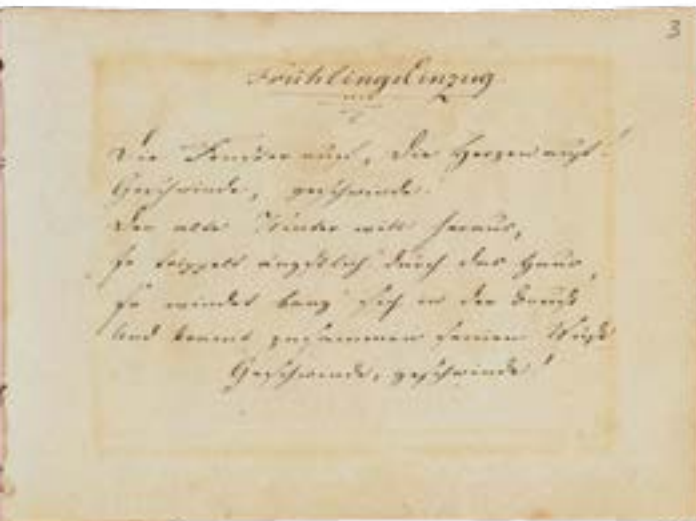 3
FrühlingsEinzug
Die Fenster auf, die Herzen auf!
Geschwinde, geschwinde!
Der alte Winter will heraus,
Er trippelt ängstlich durch das Haus,
Er windet bang sich in der Brust
Und kramt zusammen seinen Wust
Geschwinde, geschwinde!